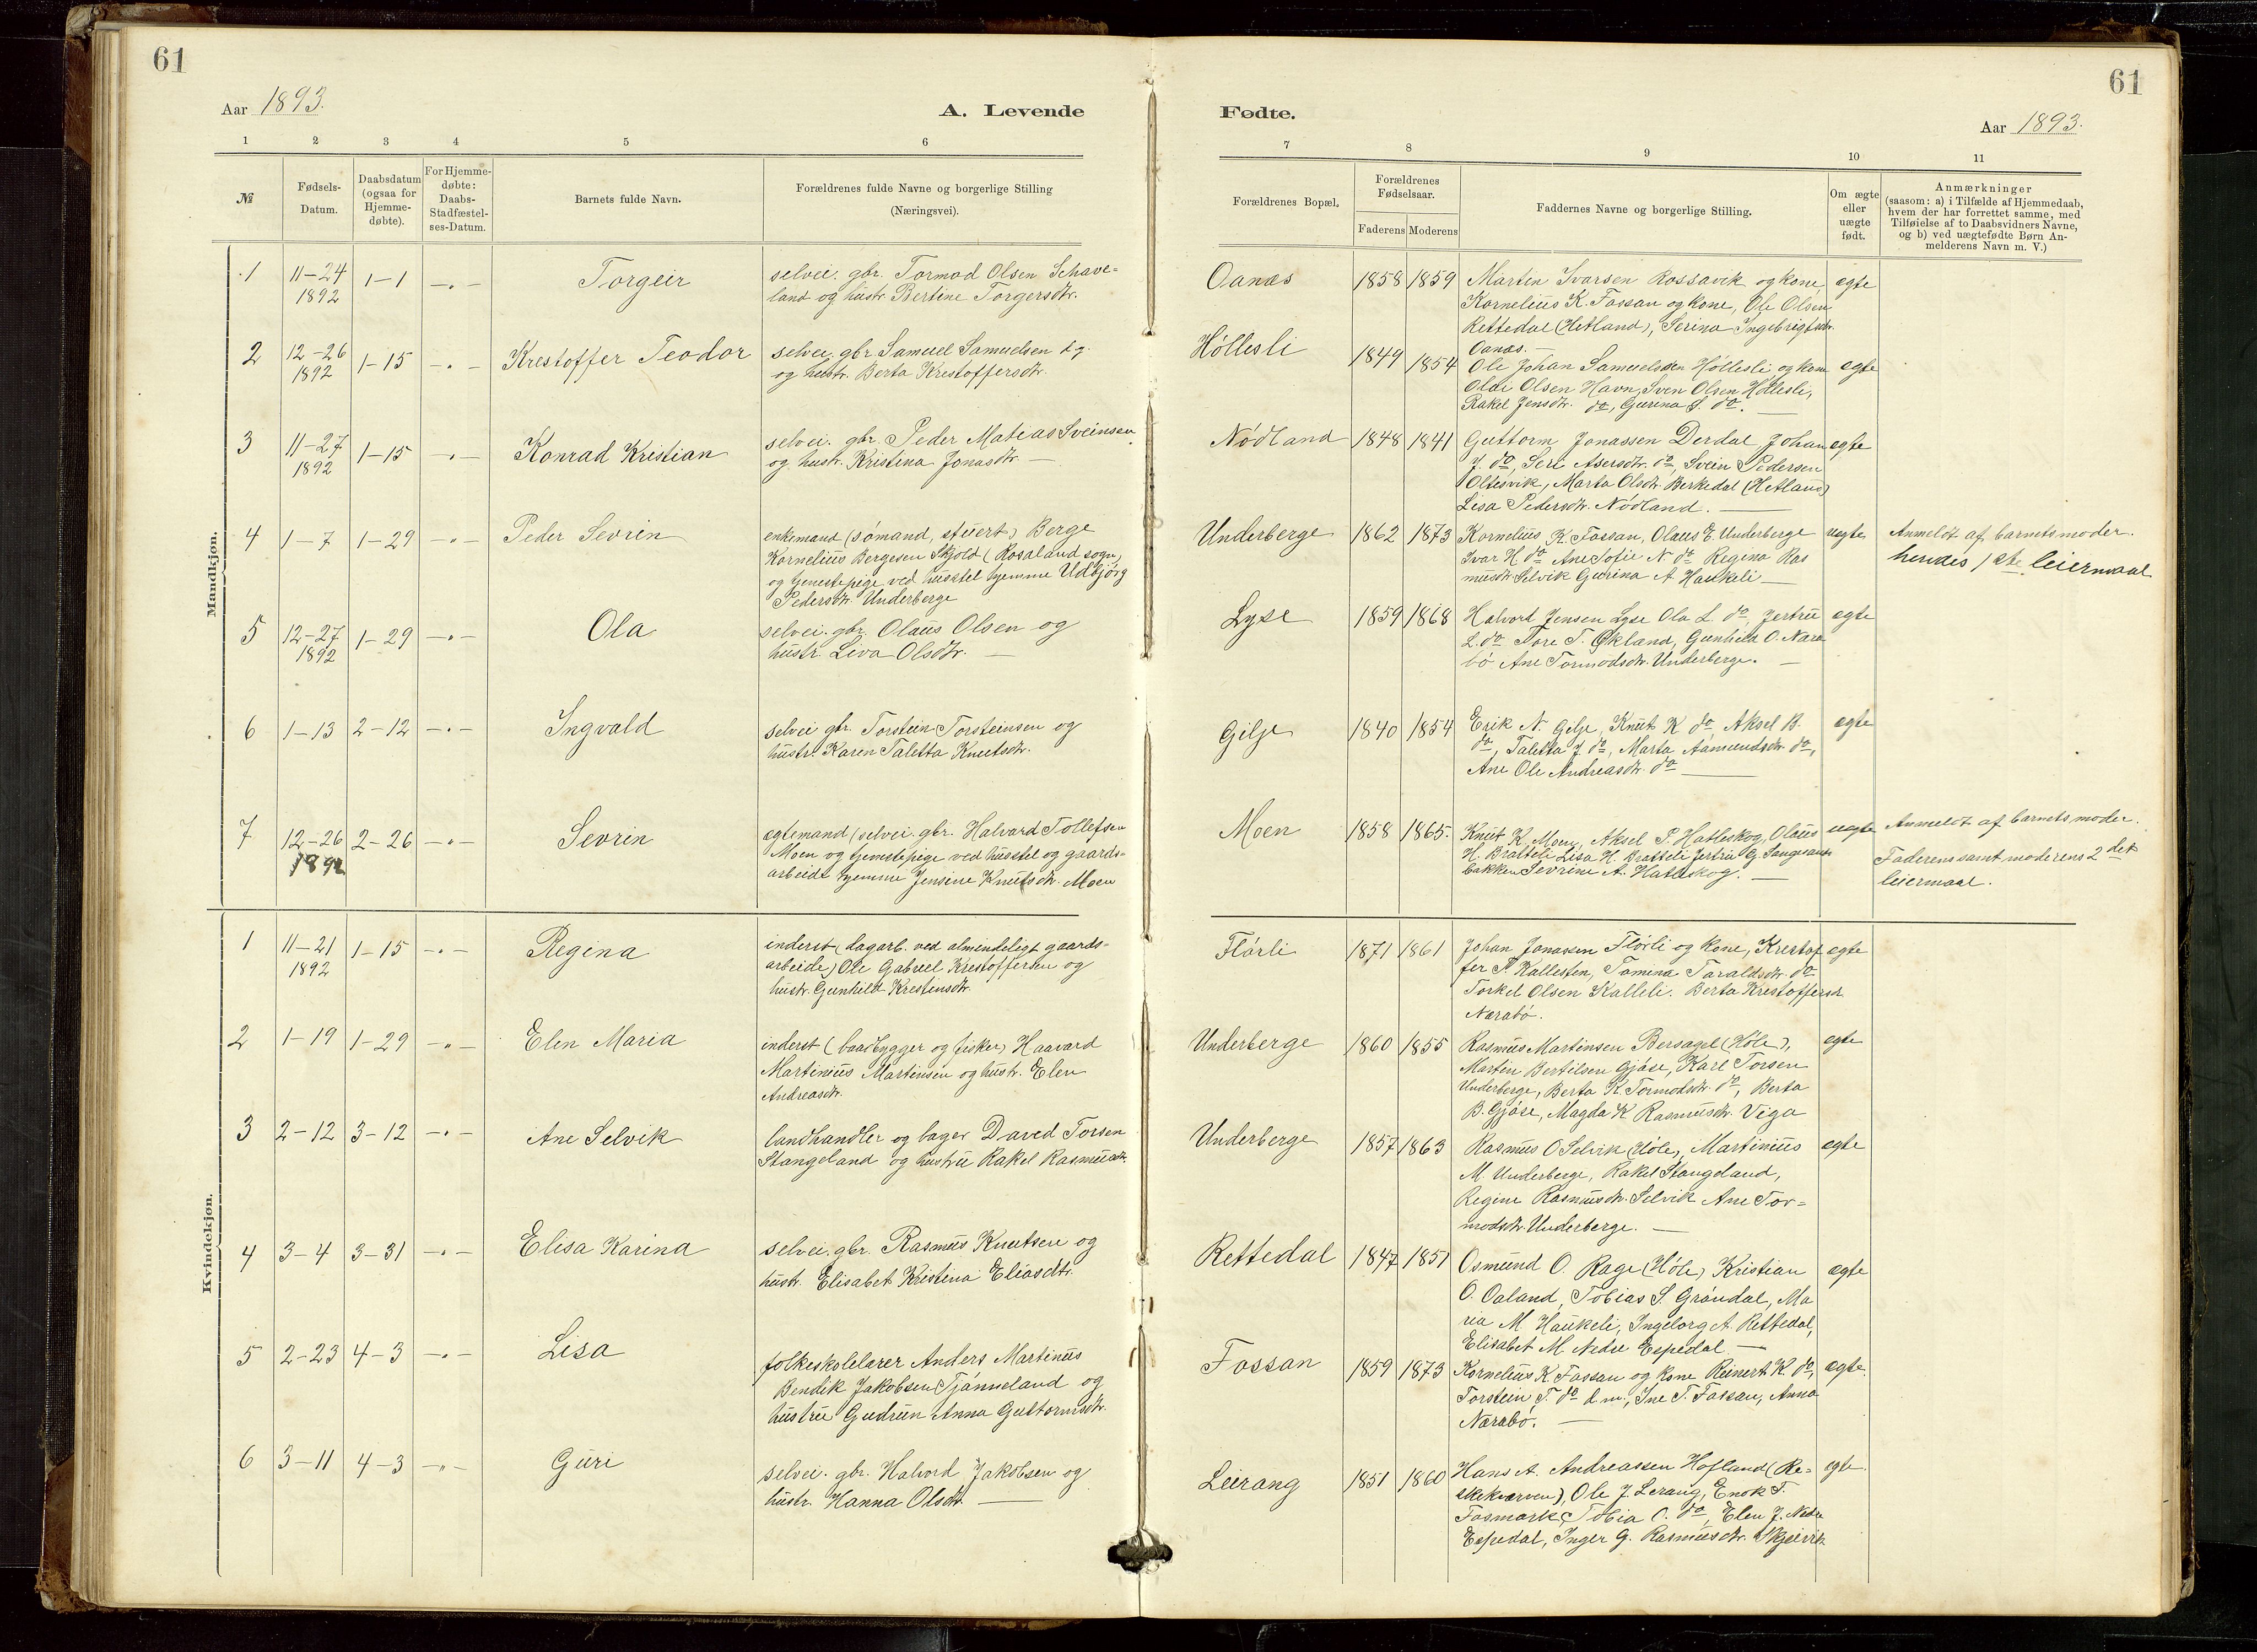 61
Aar 1893.
A. Levende
1 2 3 4 5 6
№
Fødsels-
Datum.
Daabsdatum
(ogsaa for
Hjemme-
døbte).
For Hjemme-
døbte:
Daabs-
Stadfæstel-
ses-Datum.
Barnets fulde Navn.
Forældrenes fulde Navne og borgerlige Stilling
(Næringsvei).
Mandkjøn.
1 11-24 1892 1-1 -„- Torgeir
selvei. gbr. Tormod Olsen Schave-
land og hustr. Bertine Torgersdtr.
2 12-26 1892 1-15 -„- Krestoffer Teodor
selvei. gbr Samuel Samuelsen
og hustr. Berta Krestoffersdtr.
3 11-27 1892 1-15 -„- Konrad Kristian
selvei. gbr. Peder Matias Sveinsen
og hustr. Kristina Jonasdtr. —
4 1-7 1-29 -„- Peder Sevrin
enkemand (sømand, stuert) Berge
Kornelius Bergesen Skjold (Rosaland sogn)
og tjenestepige ved husstel hjemme Udbjørg
Pedersdtr. Underberge
5 12-27 1892 1-29 -„- Ola
selvei. gbr. Olaus Olsen og
hustr. Liva Olsdtr. —
6 1-13 2-12 -„- Ingvald
selvei gbr. Torstein Torsteinsen og
hustr. Karen Taletta Knutsdtr.
7 12-26 1892 2-26 -„- Sevrin
egtemand (selvei. gbr. Halvard Tollefsen
Moen og tjenestepige ved husstel og gaards-
arbeide hjemme Jensine Knutsdtr. Moen
Kvindekjøn.
1 11-21 1892 1-15 -„- Regina
inderst (dagarb. ved almendeligt gaards-
arbeide) Ole Gabriel Krestoffersen og
hustr. Gunhild Krestensdtr.
2 1-19 1-29 -„- Elen Maria
inderst (baadbygger og fisker) Haavard
Martinius Martinsen og hustr. Elen
Andreasdtr.
3 2-12 3-12 -„- Ane Selvik
landhandler og bager David Torsen
Stangeland og hustru Rakel Rasmusdtr.
4 3-4 3-31 -„- Elisa Karina
selvei. gbr. Rasmus Knutsen og
hustr. Elisabet Kristina Eliasdtr.
5 2-23 4-3 -„- Lisa
folkeskolelærer Anders Martinus
Bendik Jakobsen Tjänneland og
hustru Gudrun Anna Guttormsdtr.
6 3-11 4-3 -„- Guri
selvei. gbr. Halvord Jakobsen og
hustr. Hanna Olsdtr. —
61
Fødte.
Aar 1893.
7 8 9 10 11
Forældrenes Bopæl.
Forældrenes
Fødselsaar.
Faderens Moderens
Faddernes Navne og borgerlige Stilling.
Om ægte
eller
uægte
født.
Anmærkninger
(saasom: a) i Tilfælde af Hjemmedaab,
hvem der har forrettet samme, med
Tilføielse af to Daabsvidners Navne,
og b) ved uægtefødte Børn An-
melderens Navn m. V.)
Oanæs 1858 1859 Martin Ivarsen Rossavik og kone, egte
Kornelius K. Fossan og kone, Ole Olsen
Rettedal (Hetland), Serina Ingebrigtsdtr.
Oanæs. —
Höllesli 1849 1854 Ole Johan Samuelssen Höllesli og kone egte
Olai Olsen Havn, Sven Olsen Höllesli,
Rakel Jensdtr. do, Gurina S. do. —
Nödland 1848 1841 Guttorm Jonassen Derdal, Johan egte
J. do, Seri Asersdtr. do, Svein Pedersen
Oltesvik, Marta Olsdtr. Berkedal (Hetland)
Lisa Pedersdtr. Nödland. —
Underberge 1862 1873 Kornelius K. Fossan, Olaus E. Underberge uegte Anmeldt af barnets moder.
Ivar H do Ane Sofie N do Regina Ras hendes 1ste leiermaal
musdtr. Selvik Gurina A Haukeli —
Lyse 1859 1868 Halvord Jensen Lyse Ola L. do, Jertru egte
L. do Tore T. Økland, Gunhild O. Nera
bö Ane Tormodsdtr. Underberge. —
Gilje 1840 1854 Erik N. Gilje, Knut K do, Aksel B. egte
do, Taletta J do, Marta Aamundsdtr. do,
Ane Ole Andreasdtr. do —
Moen 1858 1865. Knut K. Moen, Aksel P. Hatleskog, Olaus uegte Anmeldt af barnets moder.
H. Bratteli Lisa H. Bratteli Jertru G. Faderens samt moderens 2det
bakken Sevrine A. Hatleskog. — leiermaal.
Flörli 1871 1861 Johan Jonassen Flörli og kone, Krestof egte
fer P. Kallesten, Tomina Taraldsdtr. do
Torkel Olsen Kalleli. Berta Krestoffersdtr
Nærabö.
Underberge 1860 1855 Rasmus Martinsen Bersagel (Höle), egte
Martin Bertilsen Gjöse, Karl Torsen
Underberge, Berta K. Tormodsdtr. do, Berta
B. Gjöse, Magda K Rasmusdtr. Viga
Underberge 1857 1863 Rasmus O Selvik (Höle), Martinius egte
M. Underberge, Rakel Stangeland,
Regine Rasmusdtr. Selvik Ane Tor=
modsdtr. Underberge. —
Rettedal 1847 1851 Osmund O. Rage (Höle) Kristian egte
O. Oaland, Tobias S. Gröndal, Ma
ria M Haukeli, Ingeborg A. Rettedal,
Elisabet M. Nedre Espedal —
Fossan 1859 1873 Kornelius K. Fossan og kone Reinert K. do, egte.
Torstein T. do d.m., Ine T. Fossan, Anna
Nærabö. —
Leirang 1851 1860 Hans A. Andreassen Hofland (Re= egte.
skekværven), Ole J. Lerang, Enok T.
Fosmark, Tobia O. do, Elen J. Nedre
Espedal, Inger G. Rasmusdtr. Skjeivik